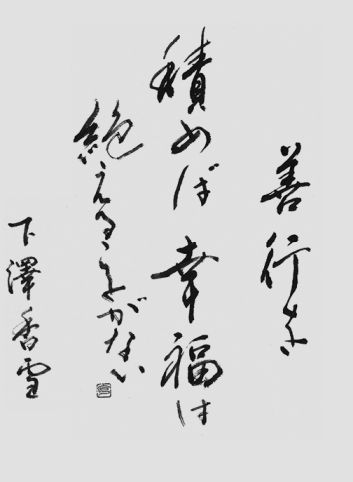 善行を
積めば幸福は
絶えることがない
下澤香雪